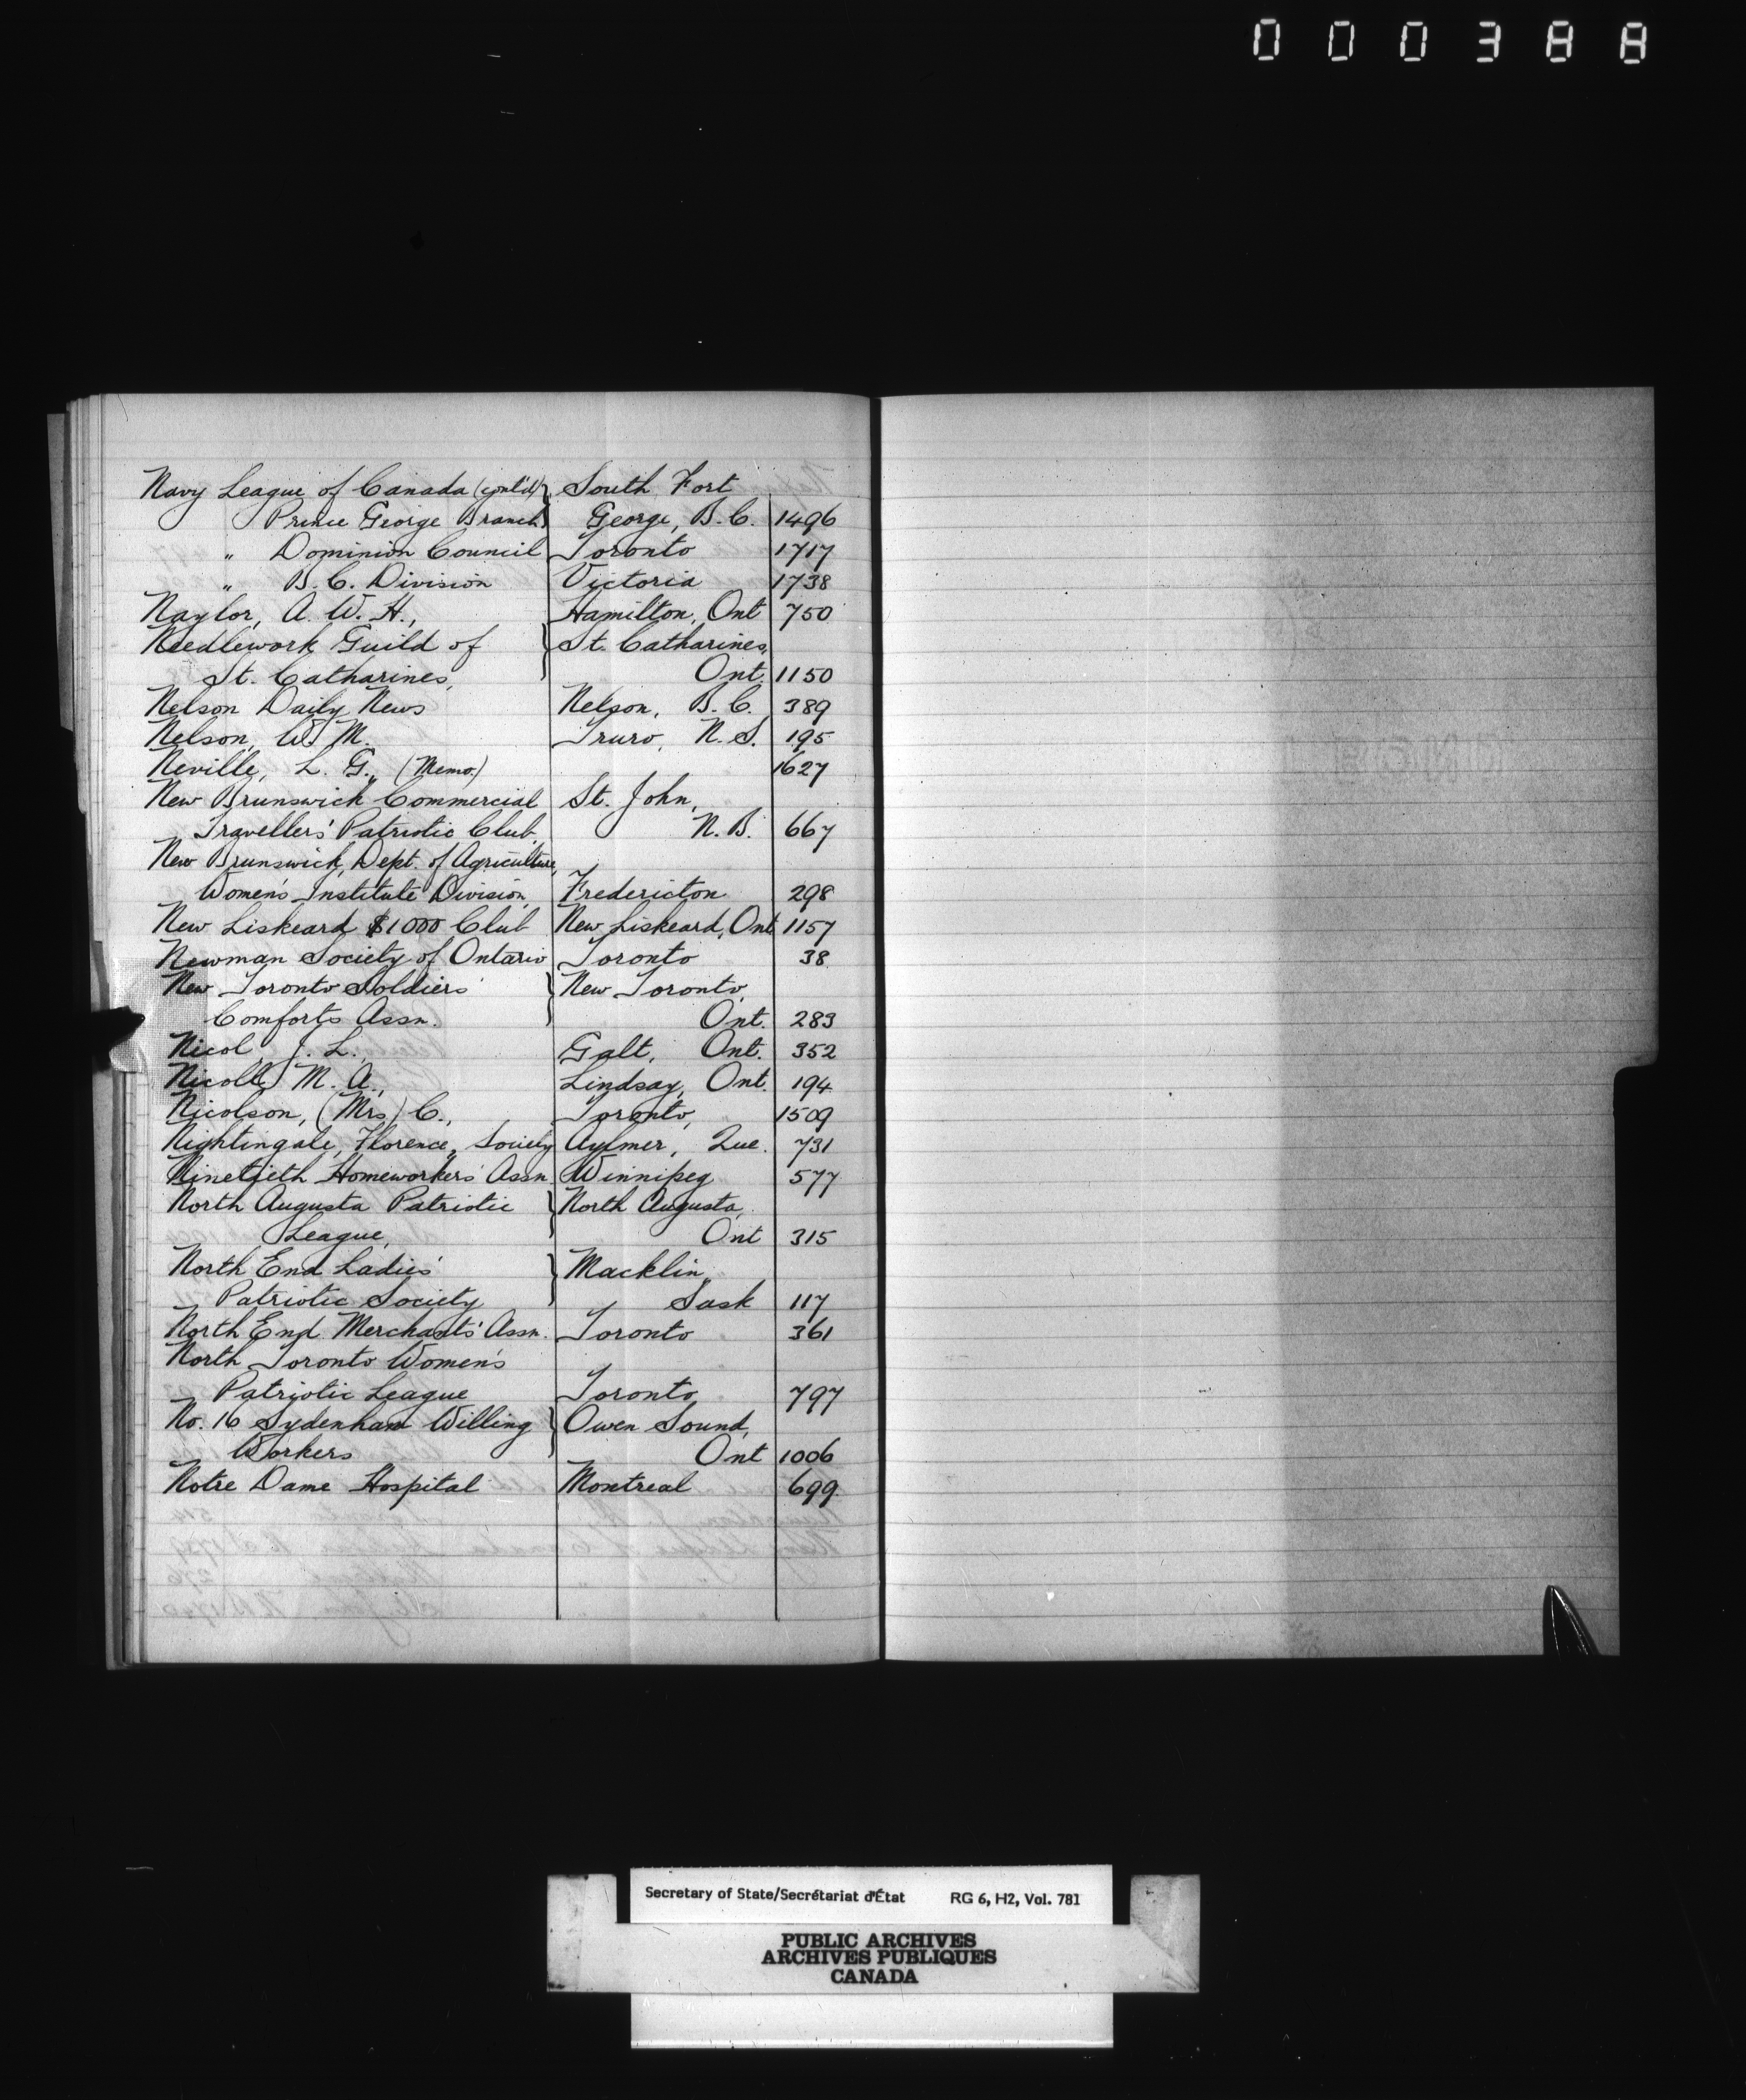 000388
Navy League of Canada (cont'd) South Fort
Prince George Branch George, B.C. 1496
" Dominion Council Toronto 1717
" B.C. Division Victoria 1738
Naylor, A. W. H., Hamilton, Ont 750
Needlework Guild of St. Catharines,
St. Catharines, Ont. 1150
Nelson Daily News Nelson, B.C. 389
Nelson, W. M. Truro, N.S. 195
Neville, L. G., (Memo.) 1627
New Brunswick Commercial St. John,
Travellers' Patriotic Club, N.B. 667
New Brunswick, Dept. of Agriculture,
Women's Institute Division, Fredericton 298
New Liskeard $1000 Club New Liskeard, Ont 1157
Newman Society of Ontario Toronto 38
New Toronto Soldiers' New Toronto,
Comforts Assn. Ont. 283
Nicol, J. L., Galt, Ont. 352
Nicolle, M. A., Lindsay, Ont. 194
Nicolson, (Mrs) C., Toronto, 1509
Nightingale, Florence, Society Aylmer, Que. 731
Ninetieth Homeworkers' Assn. Winnipeg 577
North Augusta Patriotic North Augusta,
League, Ont 315
North End Ladies' Macklin,
Patriotic Society Sask 117
North End Merchants' Assn. Toronto 361
North Toronto Women's
Patriotic League Toronto 797
No. 16 Sydenham Willing Owen Sound,
Workers Ont 1006
Notre Dame Hospital Montreal 699
Secretary of State/Secrétariat d'État RG 6, H2, Vol. 781
PUBLIC ARCHIVES
ARCHIVES PUBLIQUES
CANADA